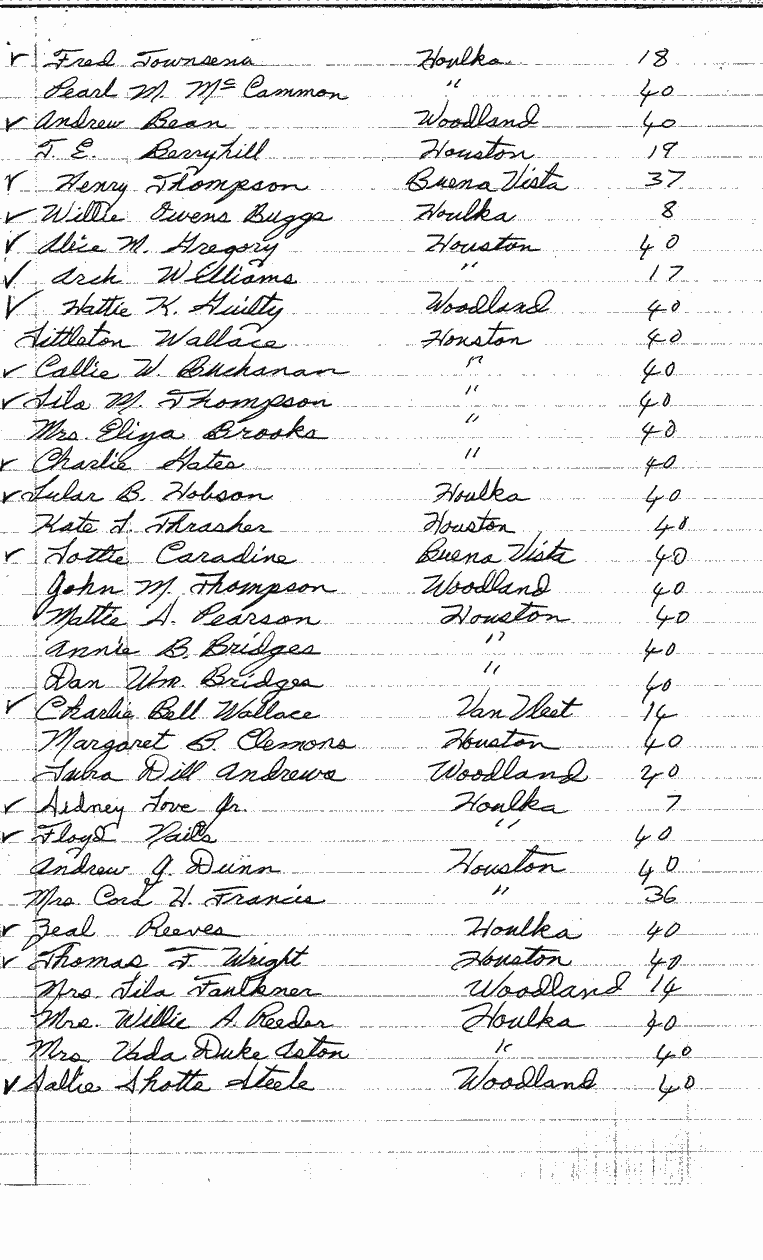 ✓ Fred Townsend Houlka 18
Pearl M. McCammon " 40
✓ Andrew Bean Woodland 40
T. E. Berryhill Houston 19
✓ Henry Thompson Buena Vista 37
✓ Willie Owens Buggs Houlka 8
✓ Alice M. Gregory Houston 40
✓ Arch Williams " 17
✓ Hattie K. Guilty Woodland 40
Littleton Wallace Houston 40
✓ Callie W. Buchanan " 40
✓ Lila M. Thompson " 40
Mrs. Eliza Brooks " 40
✓ Charlie Gates " 40
✓ Lular B. Hobson Houlka 40
Kate L. Thrasher Houston 40
✓ Lottie Caradine Buena Vista 40
John M. Thompson Woodland 40
Mattie A. Pearson Houston 40
Annie B. Bridges " 40
Dan Wm. Bridges " 40
✓ Charlie Bell Wallace Van Vleet 14
Margaret B. Clemons Houston 40
Laura Dill Andrews Woodland 20
✓ Sidney Love Jr. Houlka 7
✓ Floyd Nails " 40
Andrew J. Dunn Houston 40
Mrs Cora H. Francis " 36
✓ Zeal Reeves Houlka 40
✓ Thomas F. Wright Houston 40
Mrs. Lila Faulkner Woodland 14
Mrs. Willie A. Reeder Houlka 40
Mrs Vada Duke Aston " 40
✓ Sallie Shotts Steele Woodland 40